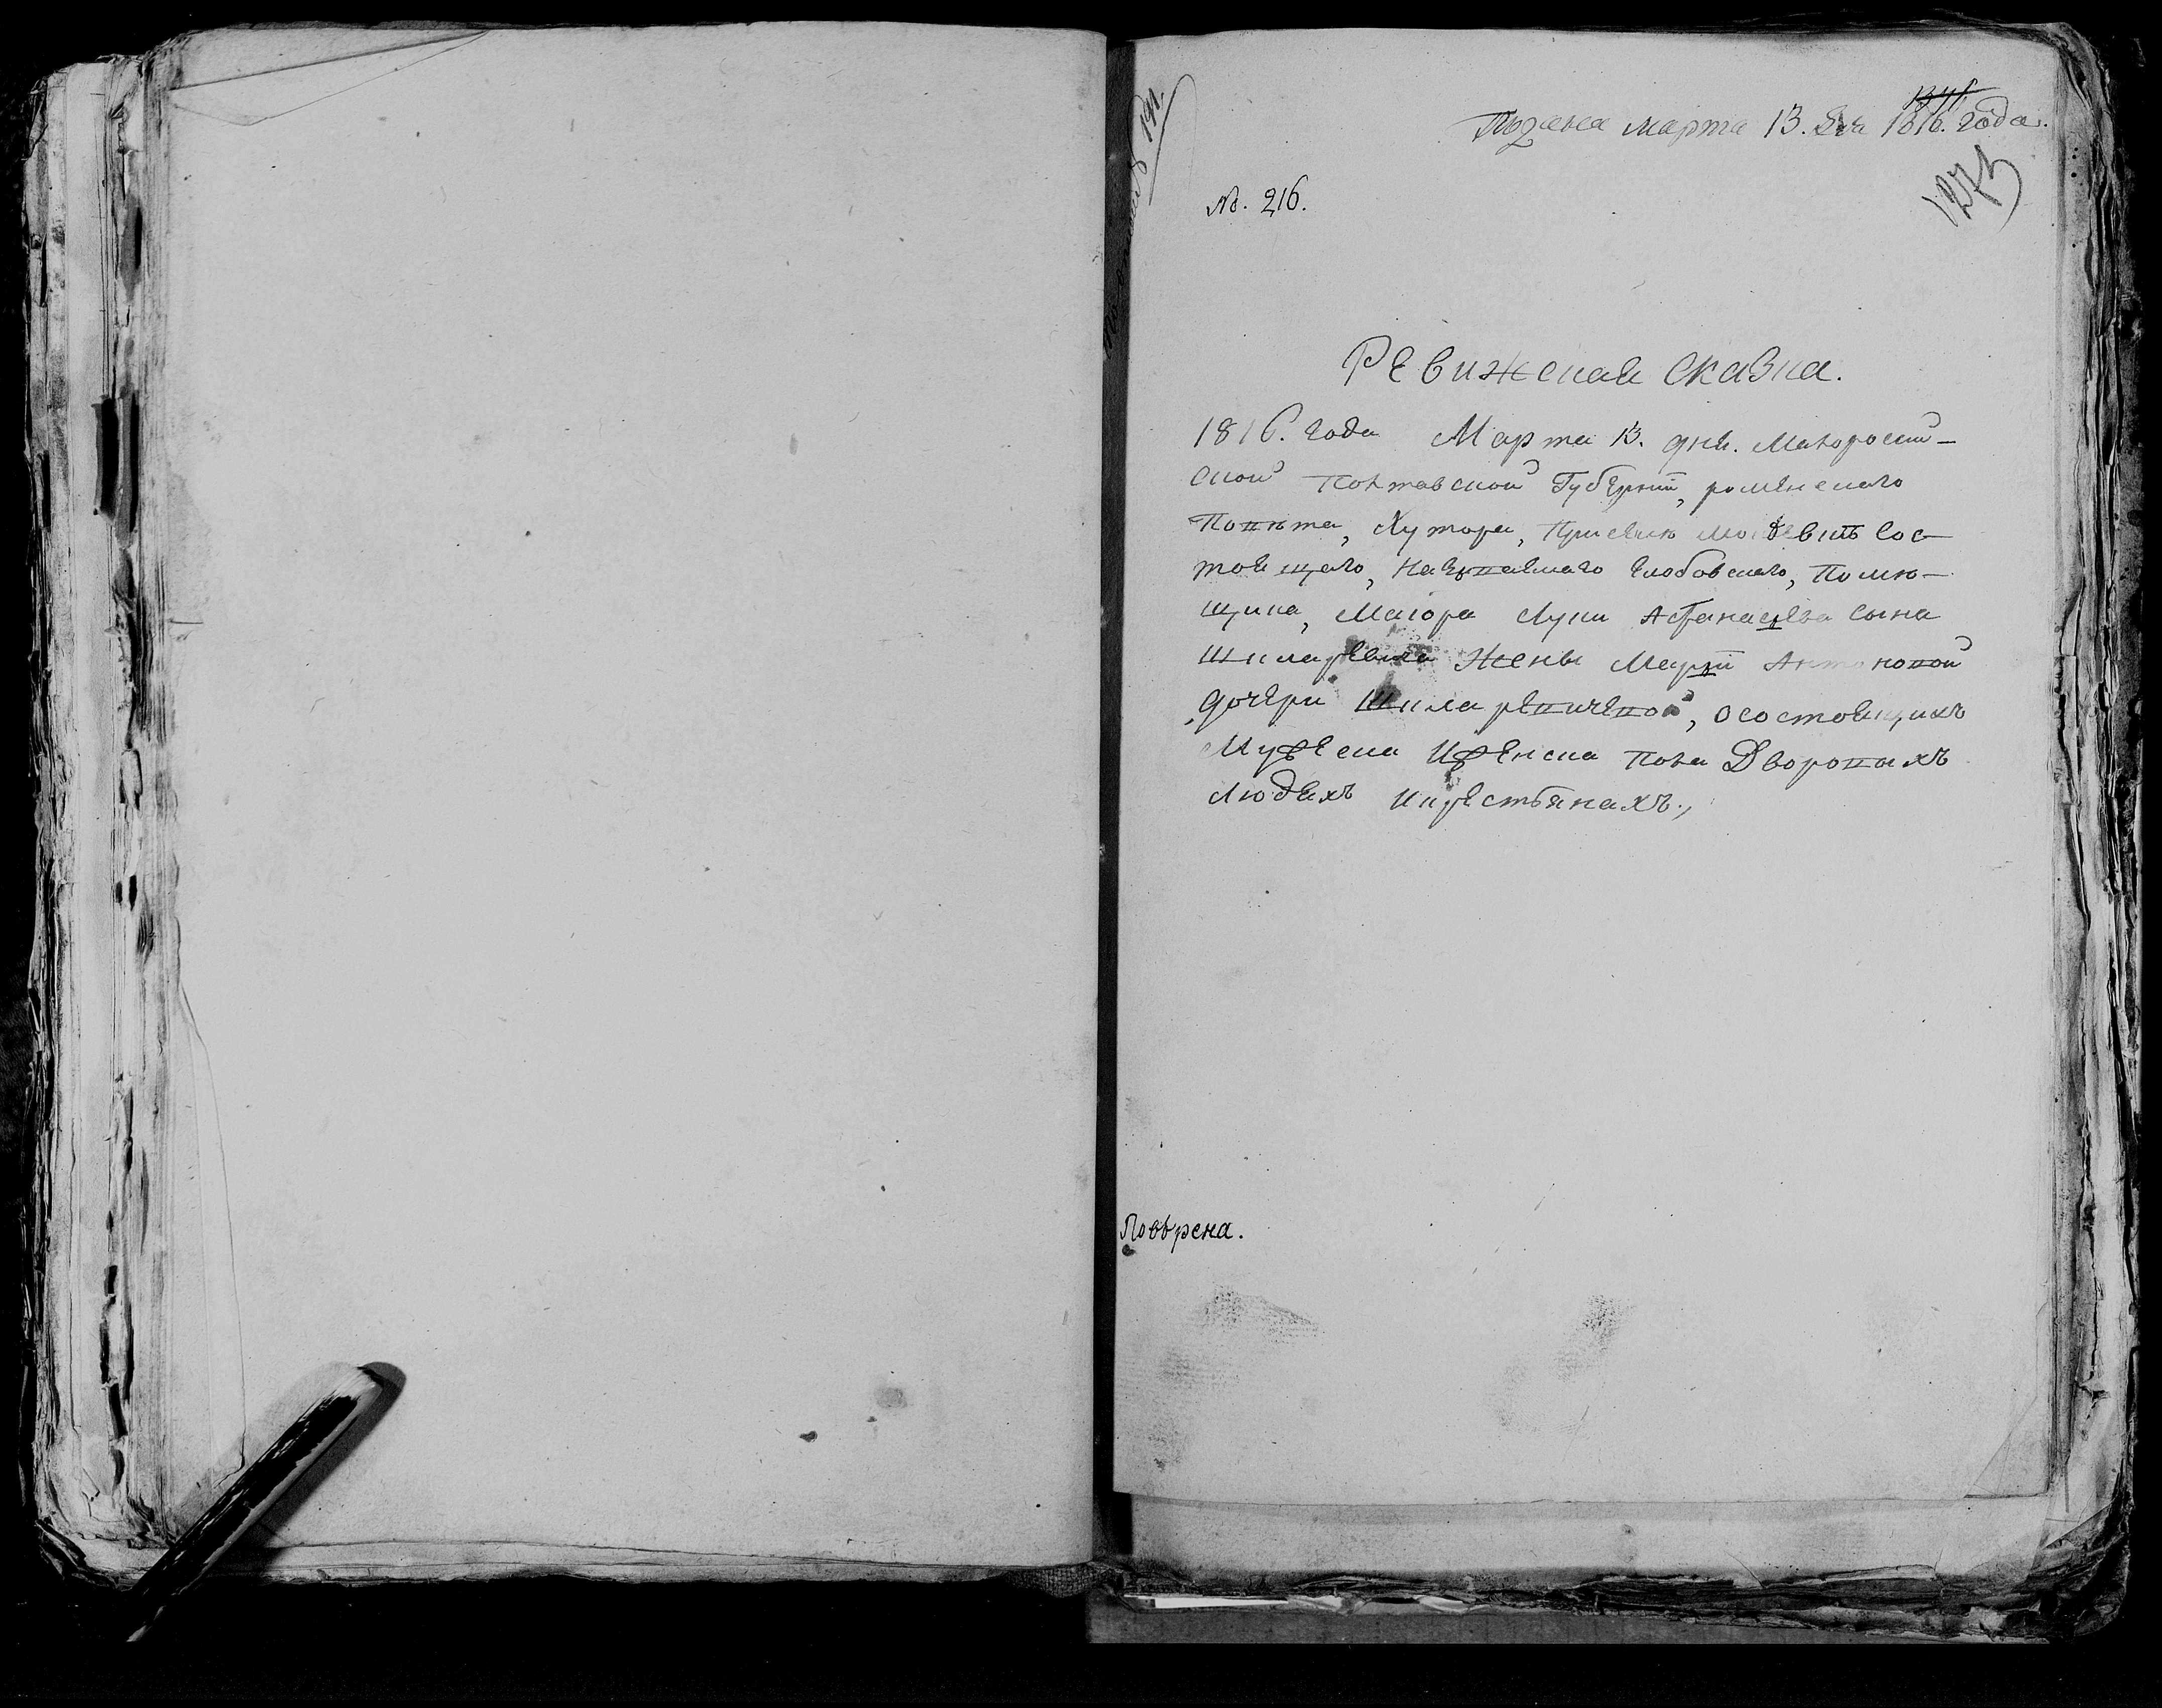 Подана марта 13. дня 1816. года.
1273
No. 216.
Ревижская Сказка.
1816. года Марта 13. дня. Малороссий-
ской Полтавской Губернии, роменскаго
Повѣта, Хутора, При селѣ сос-
тоящаго, называемаго Глобовскаго, Помѣ-
щика, Маіора Луки Афанасьева сына
Шкляревича Жены Маріи Антоновой
дочери Шкляревичевой, осостоящихъ
Мужеска Иженска пола Дворовыхъ
людяхъ Икрестьянахъ.,
Повѣрена.